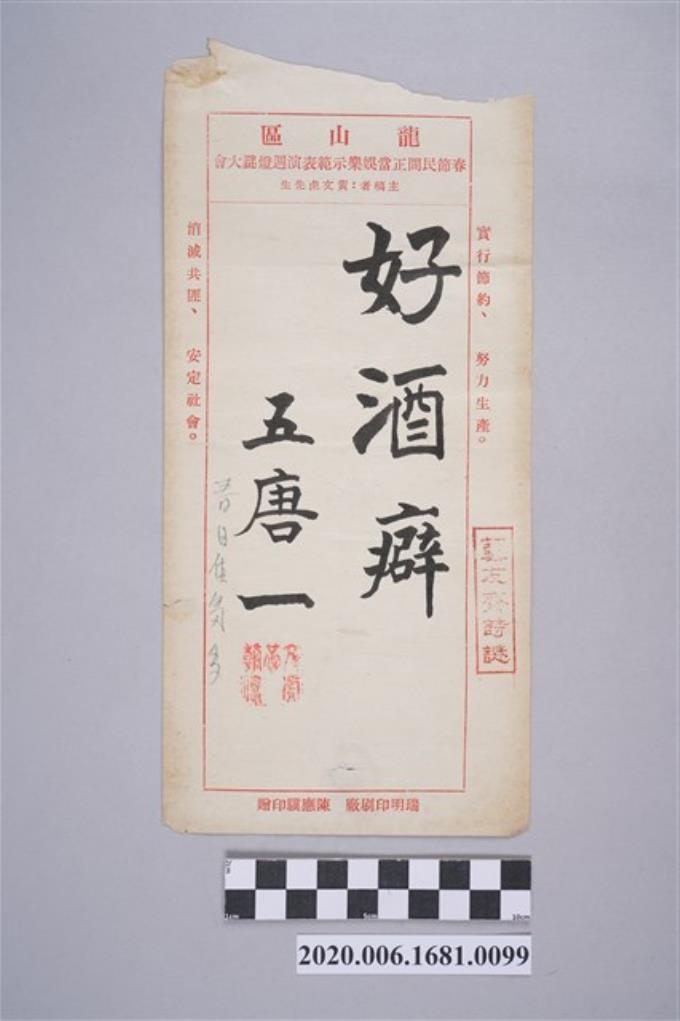 龍山區
春節民間正當娛樂示範表演週燈謎大會
主稿者：黃文虎先生
實行節約、 努力生產。
好酒癖
五唐一
昔日
消滅共匪、 安定社會。
友齋詩謎
瑞明印刷廠 陳應騏印贈
1cm 5cm 10cm
2020.006.1681.0099